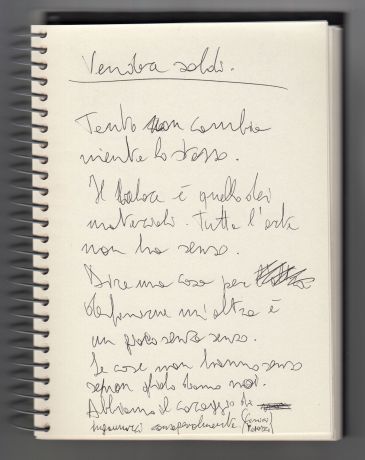 Vendra soldi.
Tanto non cambia
niente lo stesso.
Il valore è quello dei
materiali. Tutta l'arte
non ha senso.
Dire una cosa per
definirne un'altra è
un gioco senza senso.
Le cose non hanno senso
se non glielo diamo noi.
Abbiamo il coraggio di
ingannarci consapevolmente